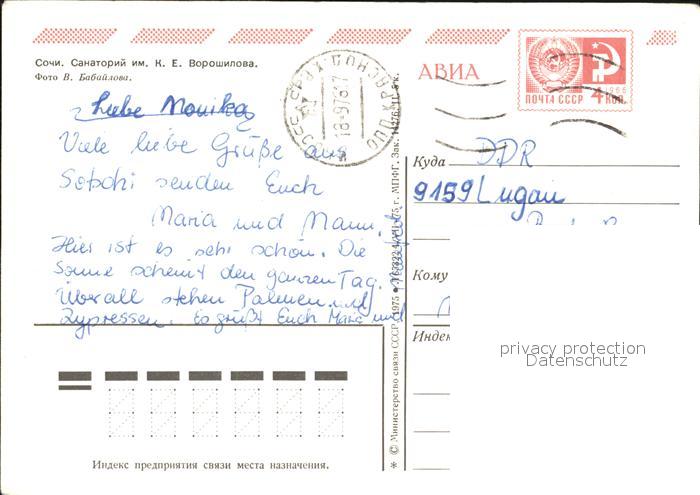 Сочи. Санаторий им. К. Е. Ворошилова.
Фото В. Бабайлова.
АВИА
ПОЧТА СССР 4 КОП.
1966
Liebe Monika
Viele liebe Grüße aus
Sotschi senden Euch
Maria und Mann.
Hier ist es sehr schön. Die
Sonne scheint den ganzen Tag.
Überall stehen Palmen und
Zypressen. Es grüßt Euch Maria und
Куда
DDR
9159 Lugau
Кому
Индек
privacy protection
Datenschutz
Индекс предприятия связи места назначения.
© Министерство связи СССР. 1975